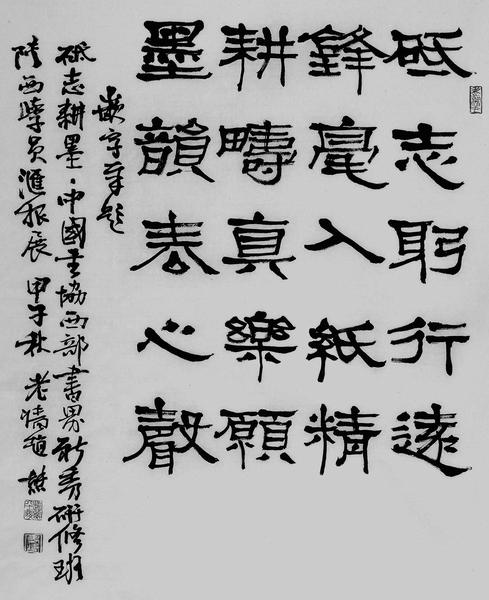 砥志躬行遠
鋒毫入紙精
耕疇真樂願
墨韻表心聲
嵌字並題
砥志耕墨·中國書協西部書界新秀研修班
陝西學員滙報展 甲午秋 老墻趙熊